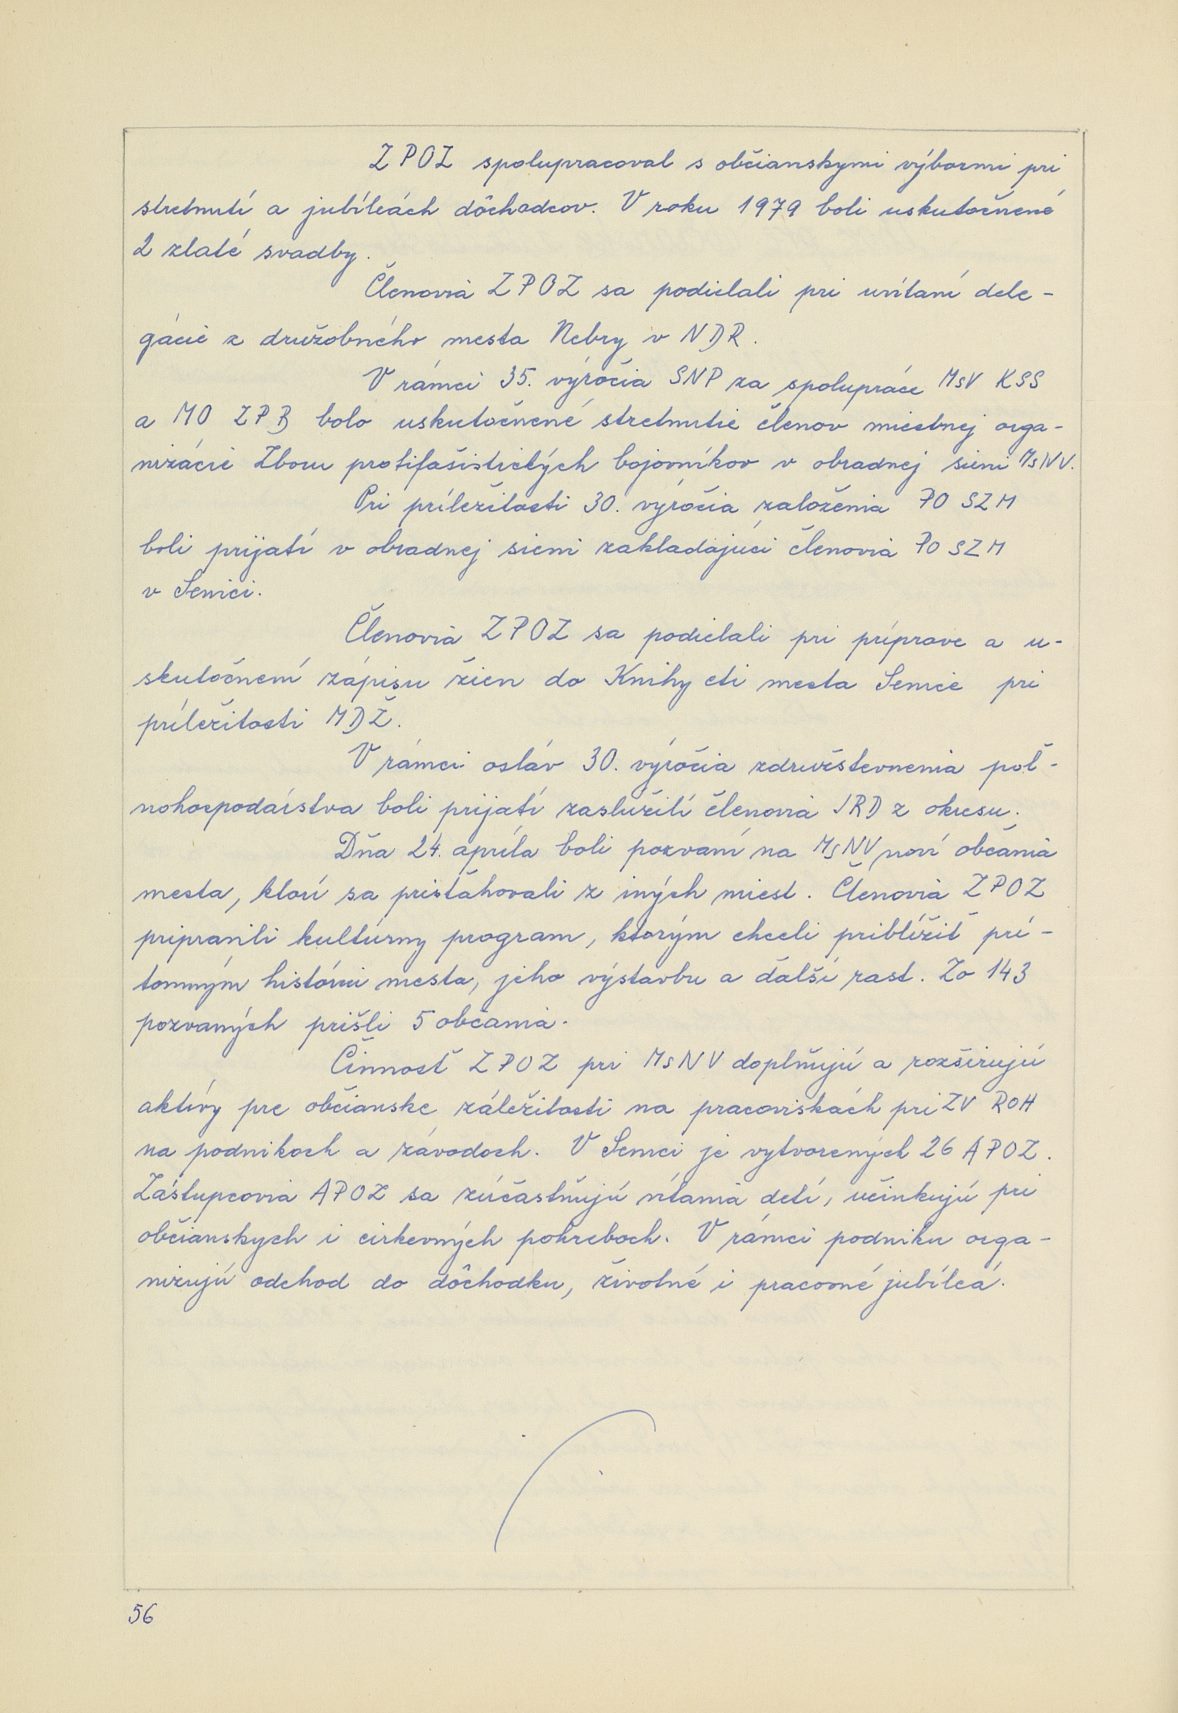 ZPOZ spolupracoval s občianskymi výbormi pri
stretnutí a jubileách dôchodcov. V roku 1979 boli uskutočnené
2 zlaté svadby.
Členovia ZPOZ sa podielali pri uvítaní dele-
gácie z družobného mesta Nebry v NDR.
V rámci 35. výročia SNP za spolupráce MsV KSS
a MO ZPB bolo uskutočnené stretnutie členov miestnej orga-
nizácie Zboru protifašistických bojovníkov v obradnej sieni MsNV.
Pri príležitosti 30. výročia založenia PO SZM
boli prijatí v obradnej sieni zakladajúci členovia PO SZM
v Senici.
Členovia ZPOZ sa podielali pri príprave a u-
skutočnení zápisu žien do Knihy cti mesta Senice pri
príležitosti MDŽ.
V rámci osláv 30. výročia združstevnenia poľ-
nohospodárstva boli prijatí zaslúžilí členovia JRD z okresu.
Dňa 24. apríla boli pozvaní na MsNV noví občania
mesta, ktorí sa prisťahovali z iných miest. Členovia ZPOZ
pripravili kultúrny program, ktorým chceli priblížiť prí-
tomným históriu mesta, jeho výstavbu a ďalší rast. Zo 143
pozvaných prišli 5 občania.
Činnosť ZPOZ pri MsNV doplňujú a rozširujú
aktívy pre občianske záležitosti na pracoviskách pri ZV ROH
na podnikoch a závodoch. V Senici je vytvorených 26 APOZ.
Zástupcovia APOZ sa zúčastňujú vítania detí, učinkujú pri
občianskych i cirkevných pohreboch. V rámci podniku orga-
nizujú odchod do dôchodku, životné i pracovné jubileá.
56